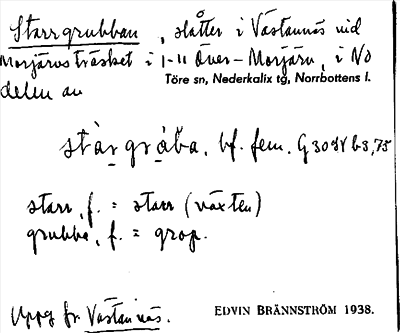 Starrgrubban, slåtter i Västannäs vid
Morjärvsträsket i 1-11 Över-Morjärv, i NO
Töre sn, Nederkalix tg, Norrbottens l.
delen av
bf. fem.
starr, f. = starr (växten)
grubba, f. = grop.
Uppg fr Västannäs.
EDVIN BRÄNNSTRÖM 1938.